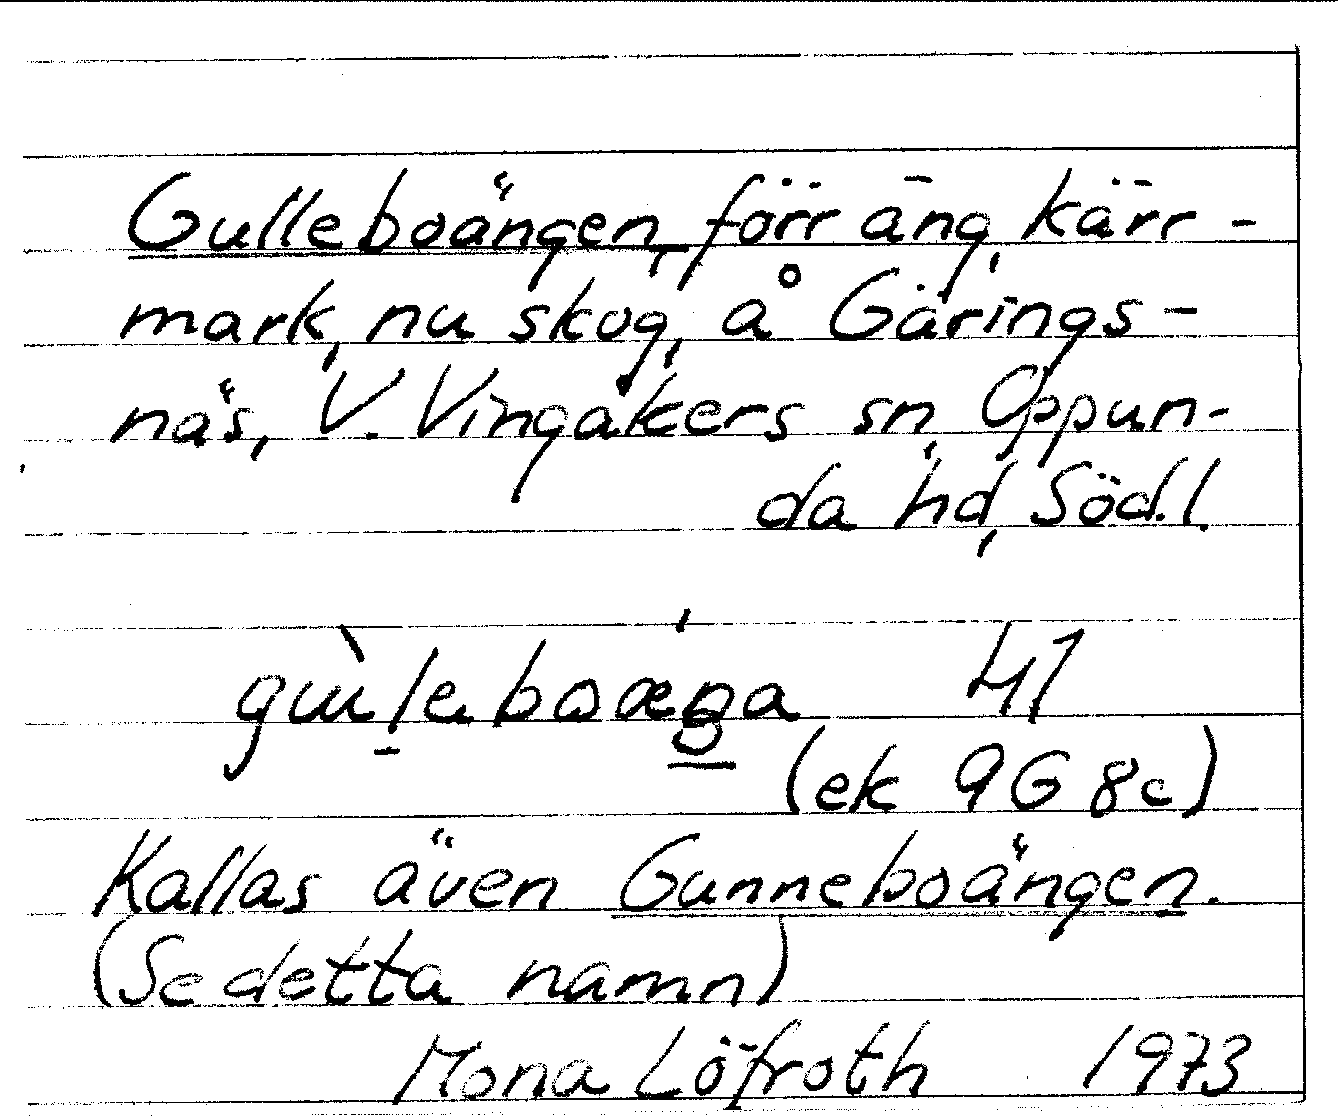 Gulleboängen, förr äng, kärr-
mark, nu skog, å Gärings-
näs, V. Vingåkers sn, Oppun-
da hd, Söd.l.
41
(ek 9G 8c)
Kallas även Gunneboängen.
(Se detta namn)
Mona Löfroth 1973